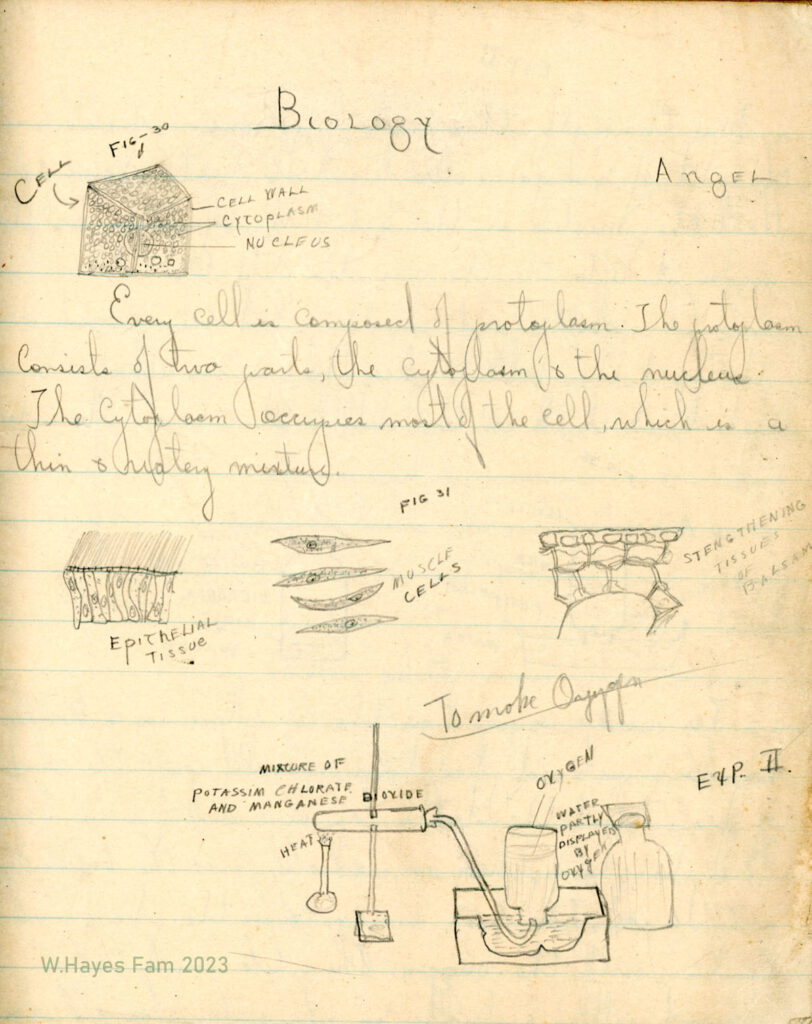 Biology
FIG-30
Angel
CELL
CELL WALL
CYTOPLASM
NUCLEUS
Every cell is composed of protoplasm. The protoplasm
consists of two parts, the cytoplasm & the nucleus.
The cytoplasm occupies most of the cell, which is a
thin & watery mixture.
FIG 31
EPITHELIAL
TISSUE
MUSCLE
CELLS
STENGTHENING
TISSUES
OF
BALSAM
To make Oxygen
EXP. II.
MIXCURE OF
POTASSIM CHLORATE
AND MANGANESE BIOXIDE
HEAT
OXYGEN
WATER
PARTLY
DISPLAYED
BY
OXYGEN
W.Hayes Fam 2023